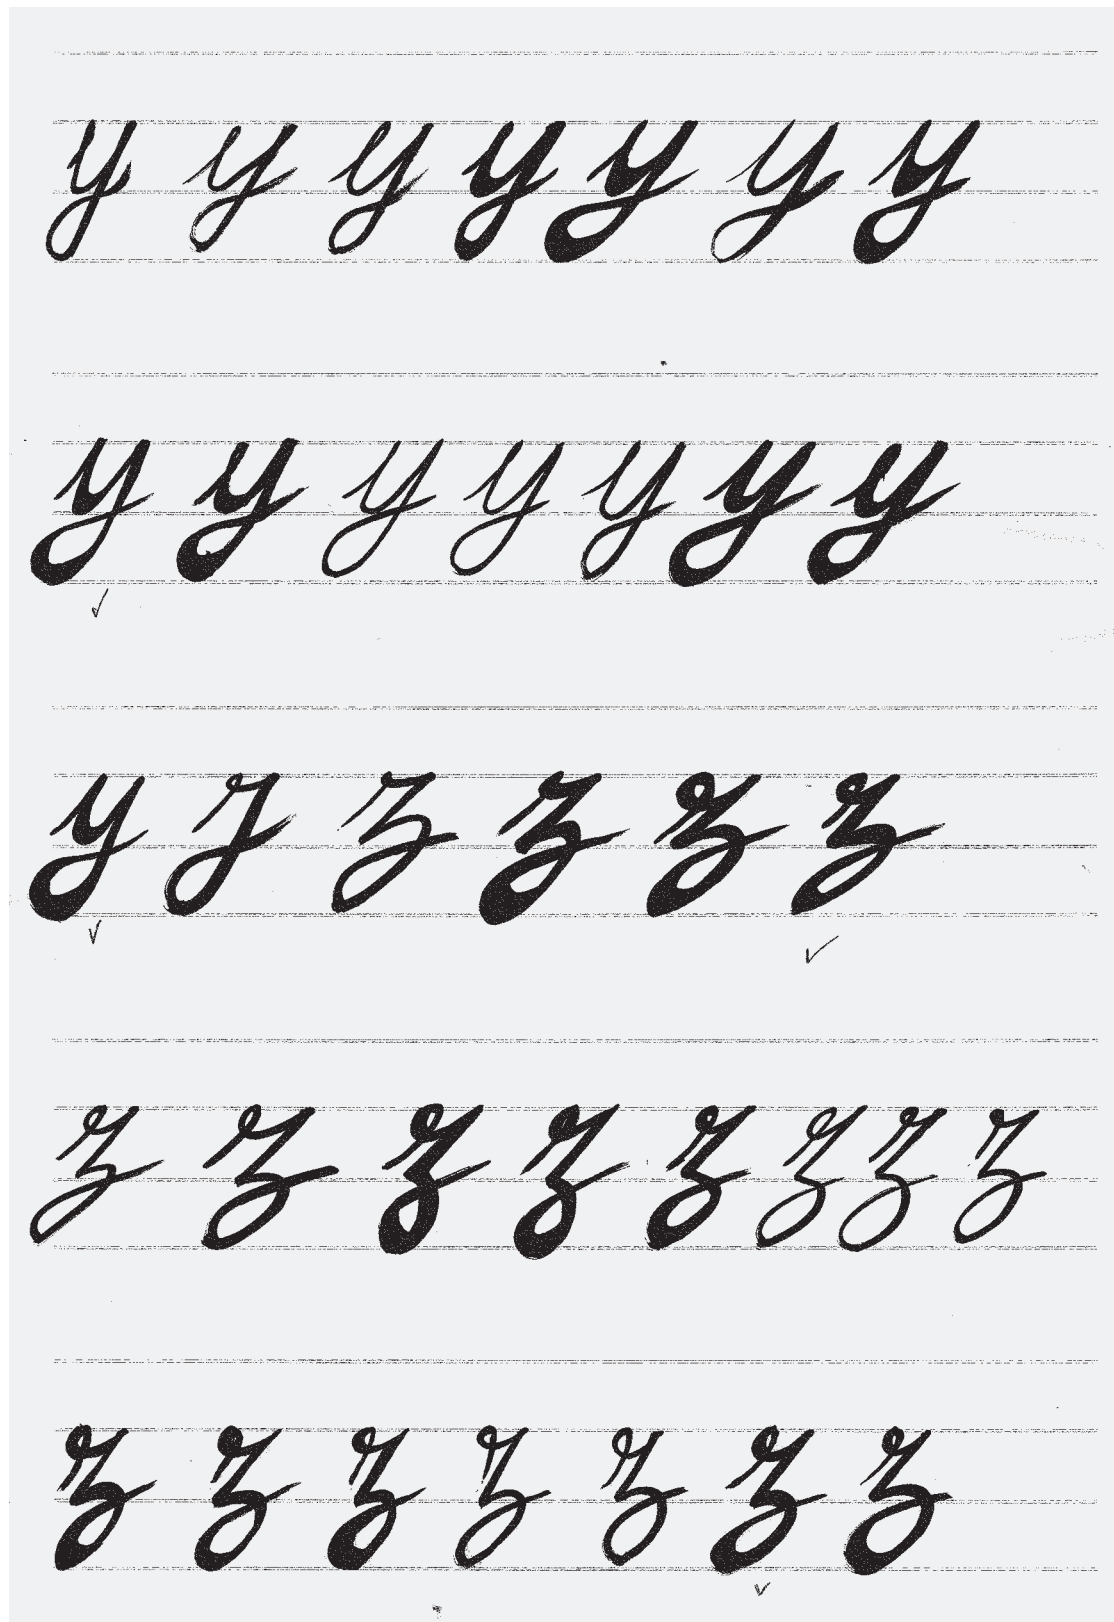 y y y y y y y
y y y y y y y
y z z z z z
z z z z z z z z
z z z z z z z